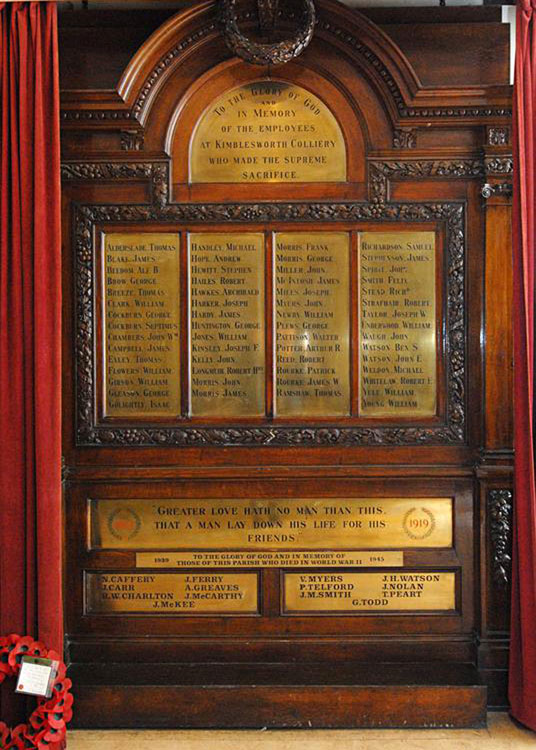 To the Glory of God
and
in Memory
of the employees
at Kimblesworth Colliery
who made the supreme
sacrifice.
Alderslade Thomas
Blake James
Beldom Ale B
Brow George
Breeze Thomas
Clark William
Cockburn George
Cockburn Septimus
Chambers John Wm
Campbell James
Ealey Thomas
Flowers William
Gibson William
Gleason George
Golightly Isaac
Handley Michael
Hope Andrew
Hewitt Stephen
Hailes Robert
Hawkes Archibald
Harker Joseph
Hardy James
Huntington George
Jones William
Kinsley Joseph F.
Kelly John
Longmeir Robert Hy
Morris John
Morris James
Morris Frank
Morris George
Miller John
McIntosh James
Miles Joseph
Myers John
Newby William
Plews George
Pattison Walter
Potter Arthur R
Reed Robert
Rourke Patrick
Rourke James W
Ramshaw Thomas
Richardson Samuel
Stephenson James
Spirit Josh
Smith Felix
Stead Richd
Strafhair Robert
Taylor Joseph W
Underwood William
Waugh John
Watson Ben S
Watson John E
Weldon Michael
Whitelaw Robert E
Yule William
Young William
"Greater love hath no man than this,
that a man lay down his life for his
friends."
1919
1939 TO THE GLORY OF GOD AND IN MEMORY OF 1945
THOSE OF THIS PARISH WHO DIED IN WORLD WAR II
N.CAFFERY J.FERRY
J.CARR A.GREAVES
R.W.CHARLTON J.McCARTHY
J.McKEE
V.MYERS J.H.WATSON
P.TELFORD J.NOLAN
J.M.SMITH T.PEART
G.TODD